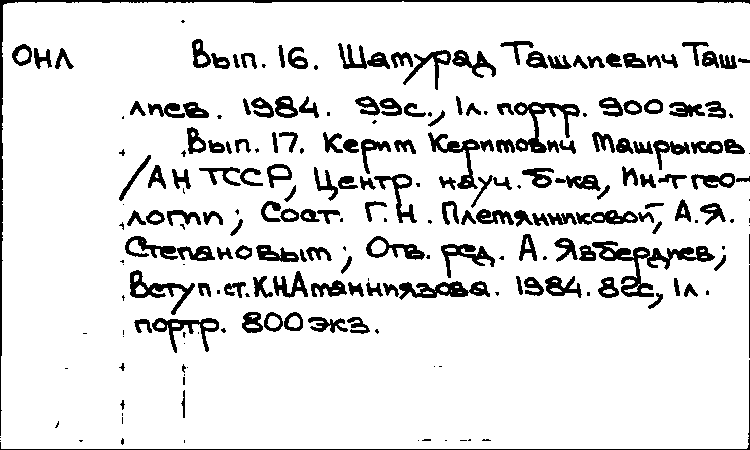 ОНЛ Вып. 16. Шамурад Ташлиевич Таш-
лиев. 1984. 99с., 1л. портр. 900 экз.
Вып. 17. Керим Керимович Машрыков
/АН ТССР, Центр. науч. б-ка, Ин-т гео-
логии; Сост. Г.Н. Племянниковой, А.Я.
Степановым; Отв. ред. А. Язбердиев;
Вступ. ст. К.Н.Аманниязова. 1984. 82с., 1л.
портр. 800 экз.